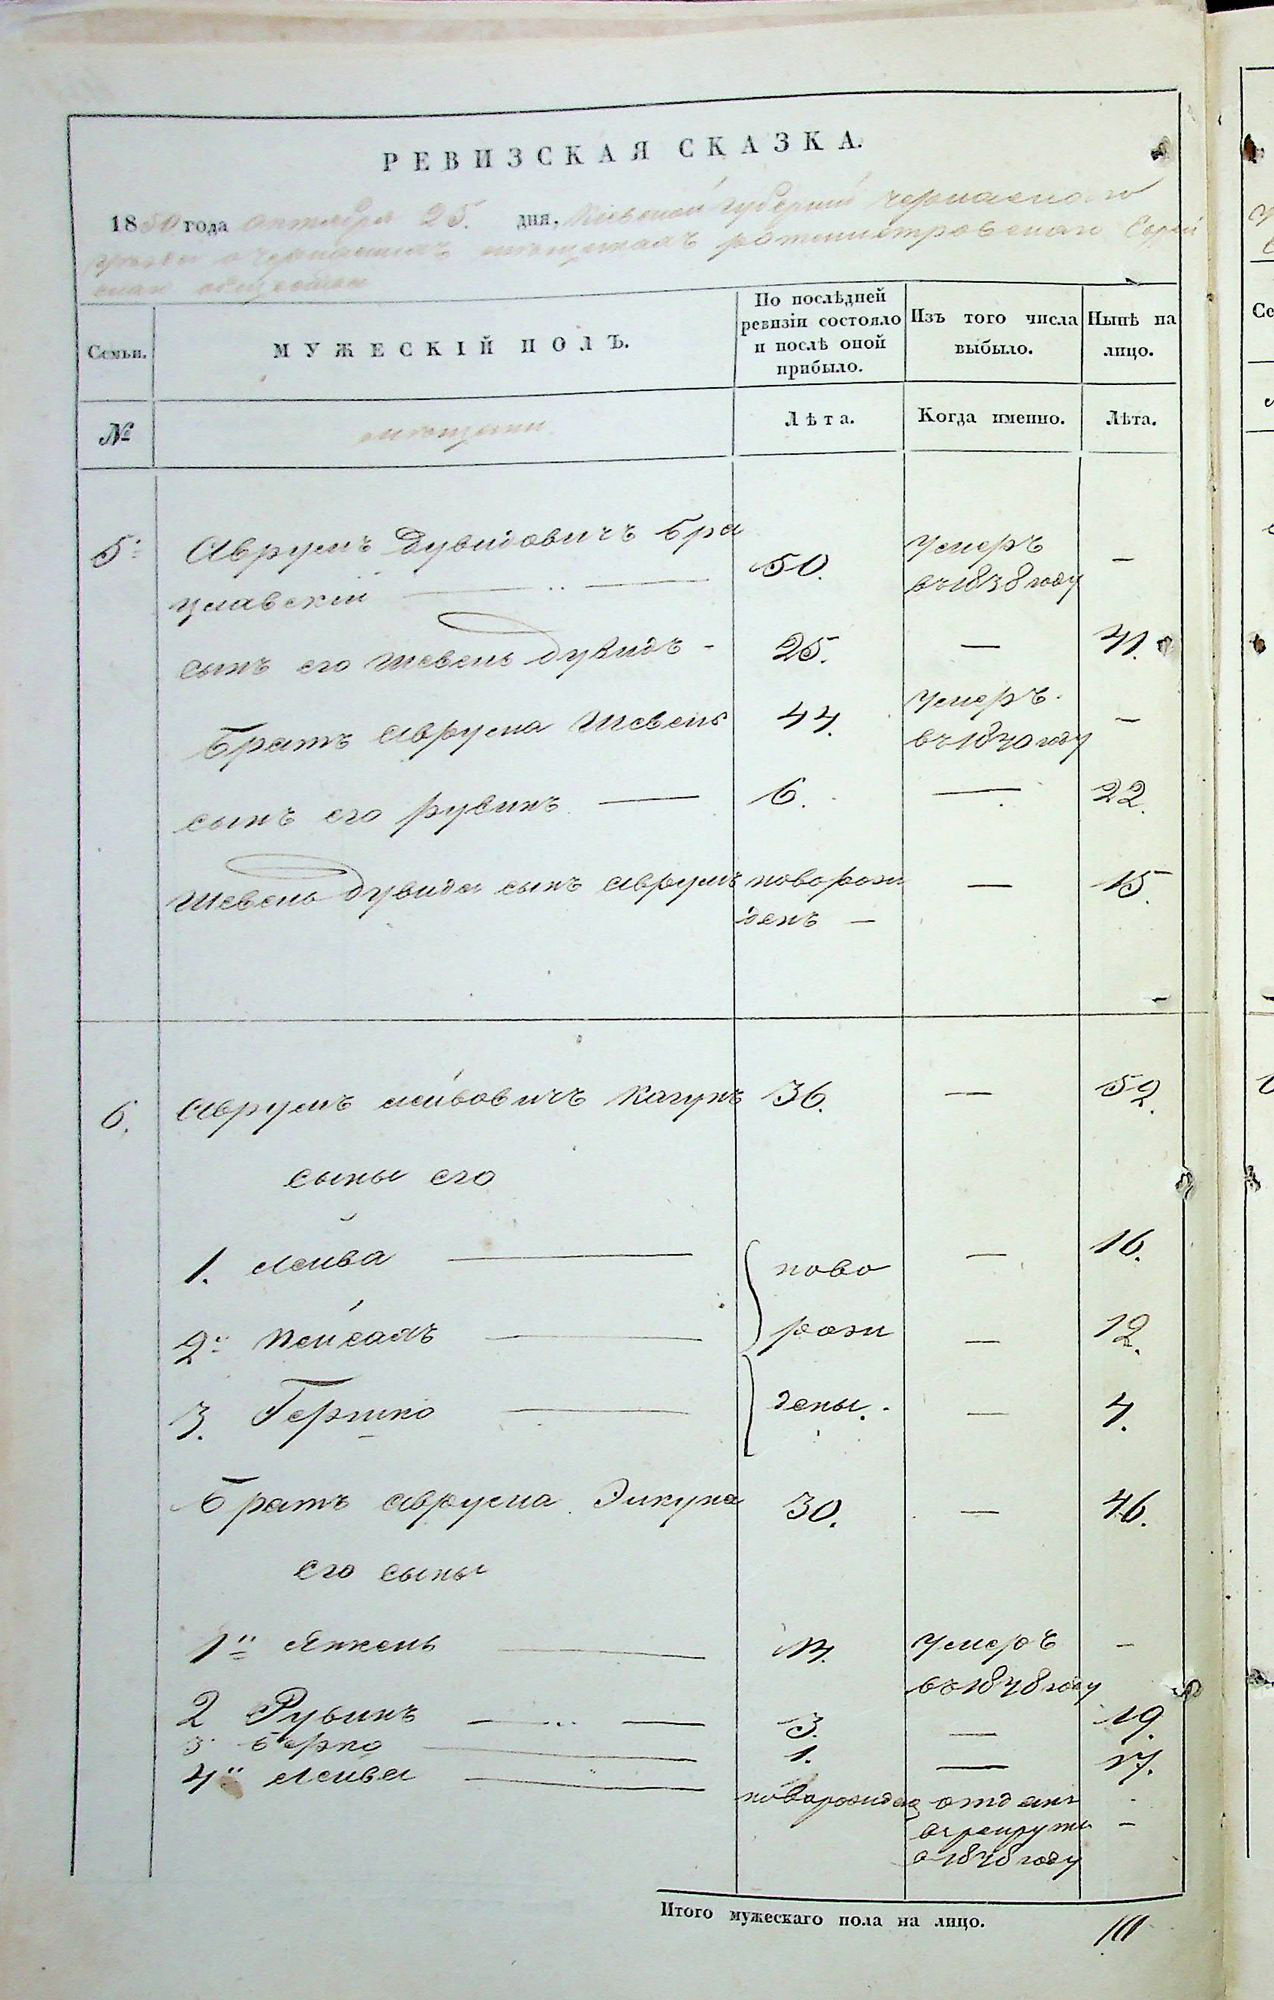 РЕВИЗСКАЯ СКАЗКА.
1850 года октября 25. дня, Кіевской губерніи Черкаскаго
о черкаскихъ мѣщанахъ ротмистровскаго Еврей
скаго общества
Семьи.
МУЖЕСКІЙ ПОЛЪ.
По послѣдней
ревизіи состояло
и послѣ оной
прибыло.
Изъ того числа
выбыло.
Нынѣ на
лицо.
№
мѣщане
Лѣта.
Когда именно.
Лѣта.
5. Аврумъ Дувидовичъ Бра
цлавскій 50. умеръ въ 1838 году —
сынъ его Шевель Дувидъ - 25. — 41.
Братъ Аврума Шевель 44. умеръ въ 1840 году —
сынъ его Рувинъ — 6. — 22.
Шевель Дувида сынъ Аврумъ новорож
денъ — — 15.
6. Аврумъ Лейбовичъ Кагунъ 36. — 52.
сыны его
1. Лейба — ново — 16.
2. Пейсахъ — рож — 12.
3. Гершко — дены. — 4.
Братъ Аврума Элкуна 30. — 46.
его сыны
1й Янкель — 13. умеръ —
въ 1848 году
2 Рувинъ — 3. — 19.
3. Берко — 1. — 17.
4й Лейба — новорожден отданъ
в рекруты —
в 1848 году
Итого мужескаго пола на лицо. 10